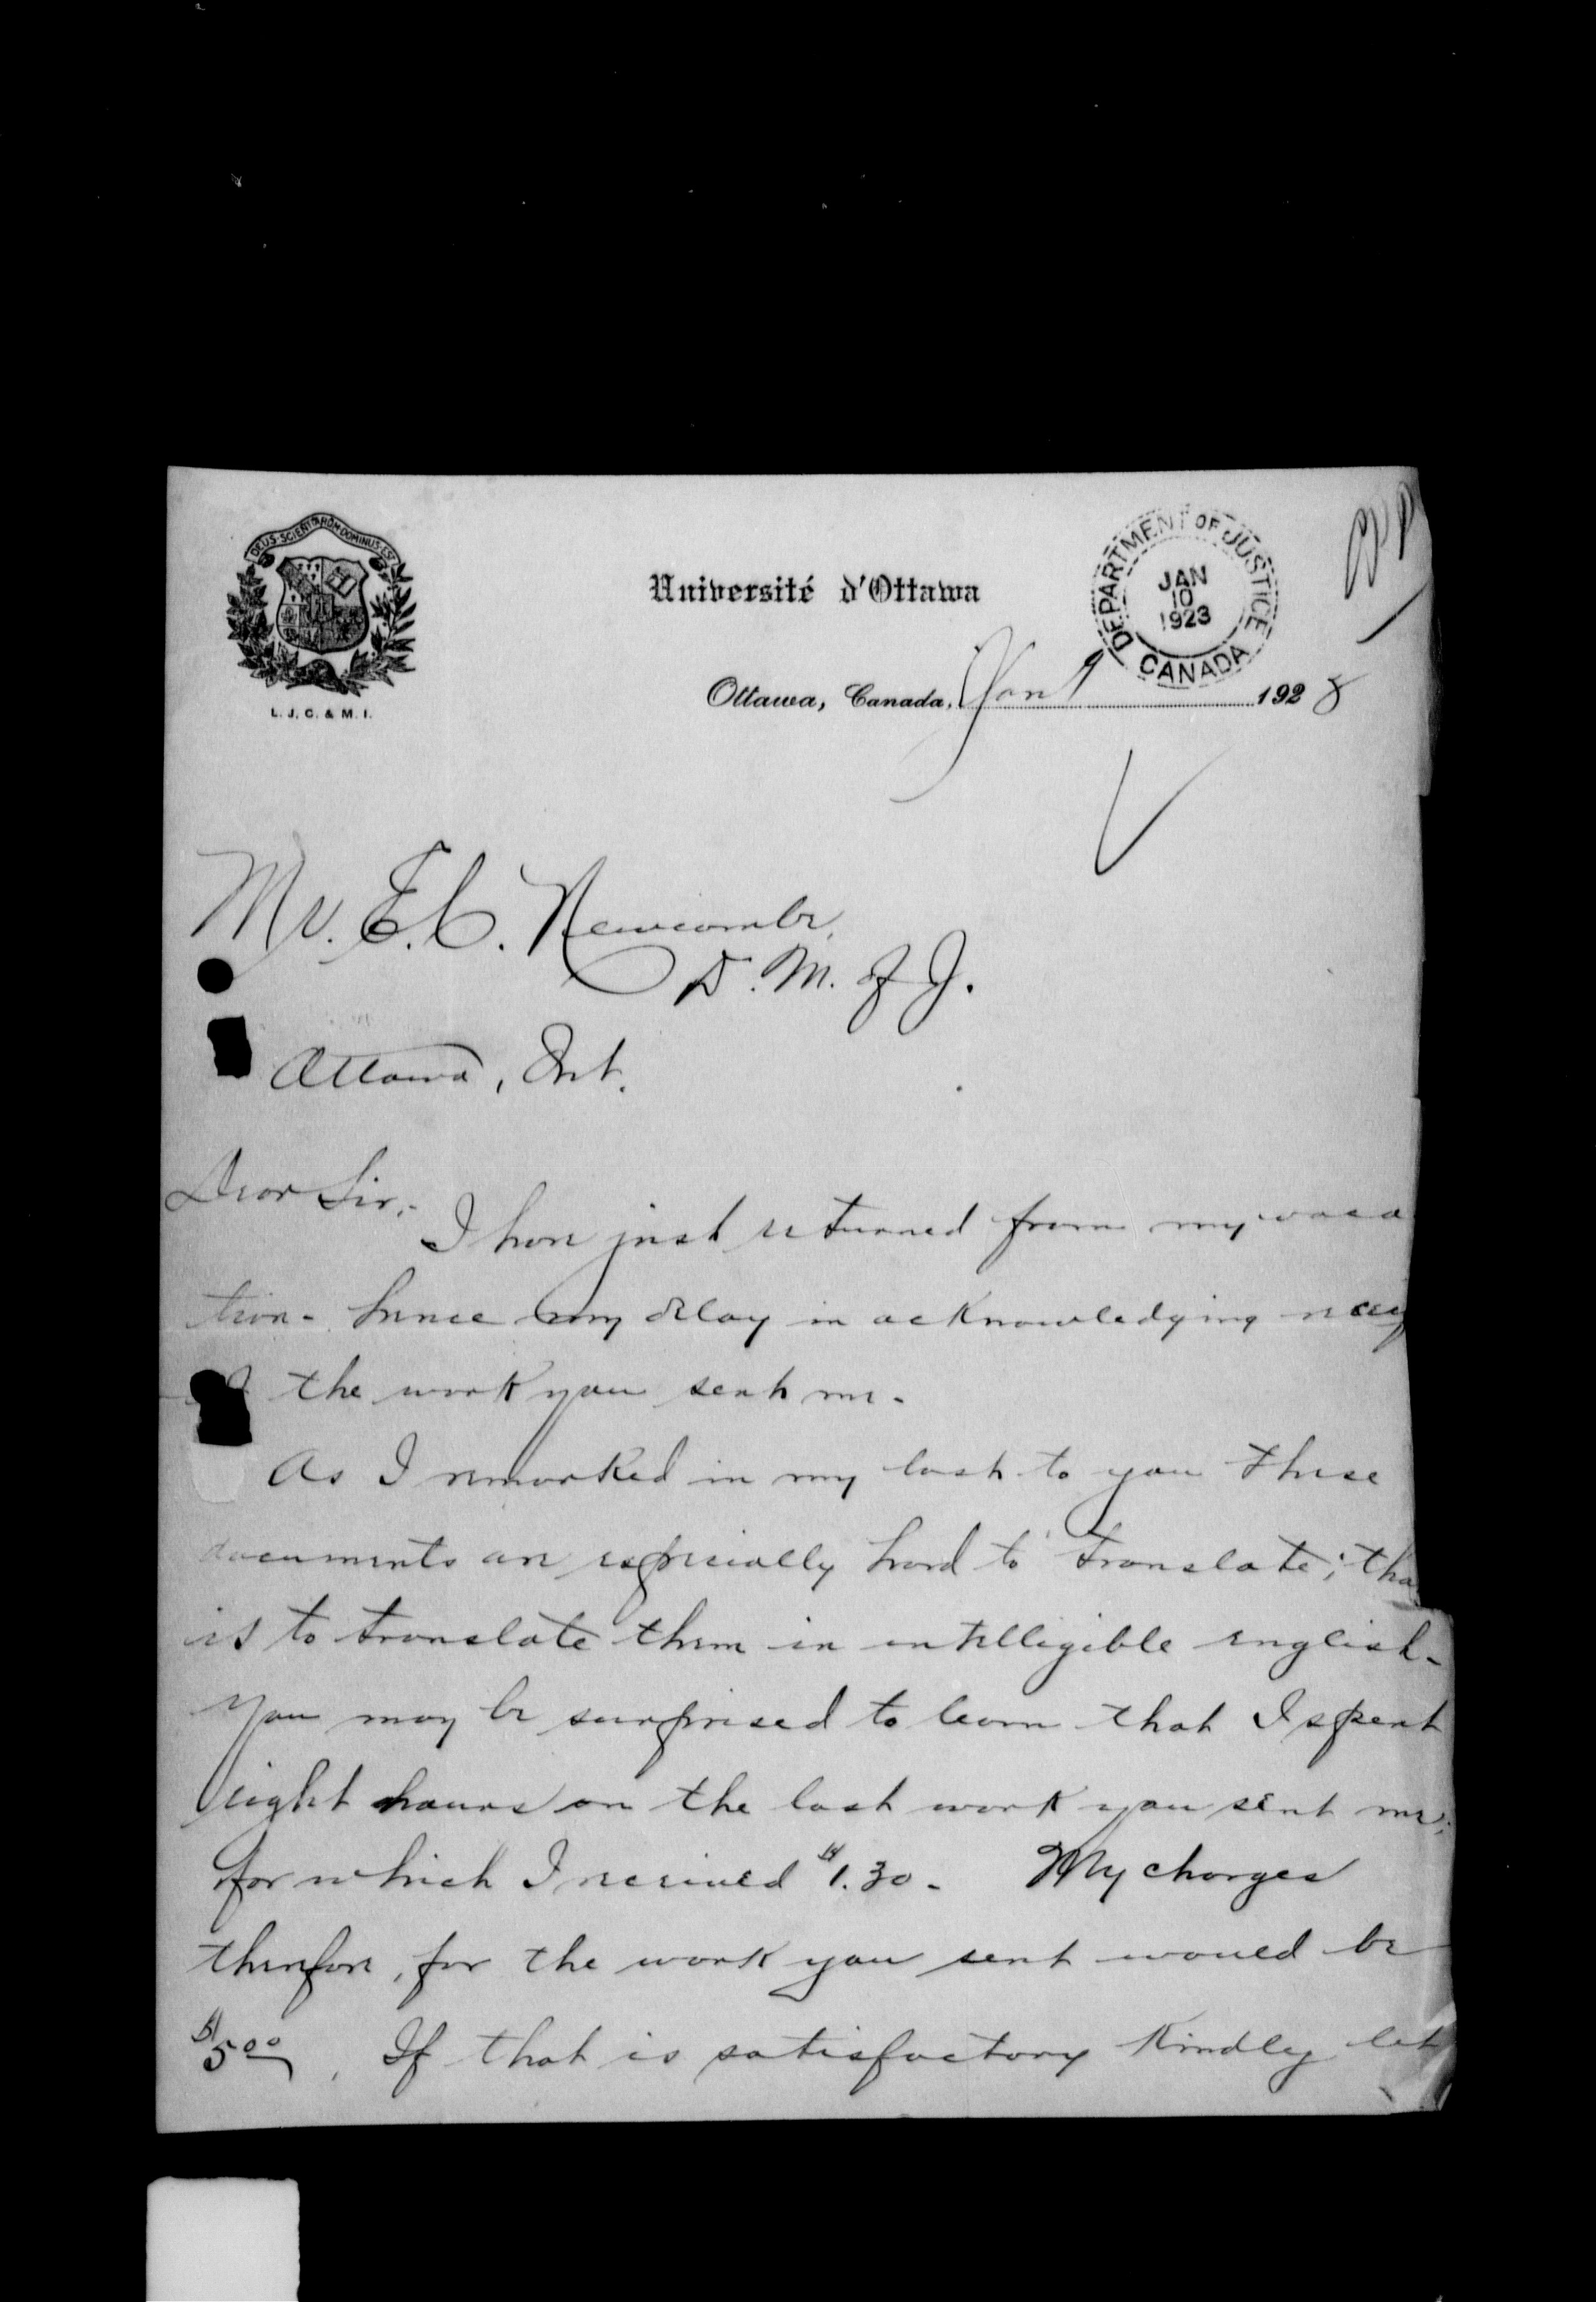 DEUS·SCIENTIARUM·DOMINUS·EST
L. J. C. & M. I.
Université d'Ottawa
DEPARTMENT OF JUSTICE
JAN
10
1923
CANADA
Ottawa, Canada, Jan 9 1923
Mr. E. C. Newcombe,
D. M. of J.
Ottawa, Ont.
Dear Sir:-
I have just returned from my vaca
tion - hence my delay in acknowledging
the work you sent me.
As I remarked in my last to you these
documents are especially hard to translate; tha
is to translate them in intelligible english.
You may be surprised to learn that I spent
eight hours on the last work you sent me;
for which I received $1.30. My charges
therefore, for the work you sent would be
$5.00. If that is satisfactory kindly let